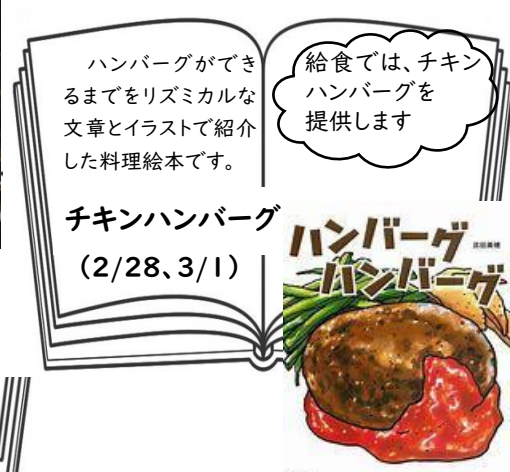 ハンバーグができ
るまでをリズミカルな
文章とイラストで紹介
した料理絵本です。
チキンハンバーグ
(2/28、3/1)
給食では、チキン
ハンバーグを
提供します
ハンバーグ
ハンバーグ